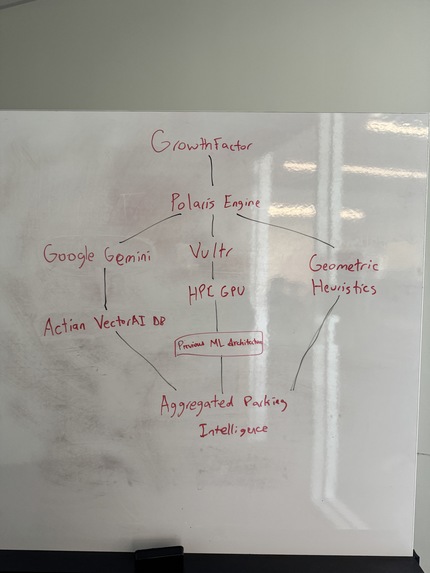 GrowthFactor
Polaris Engine
Google Gemini
Vultr
Geometric
Heuristics
HPC GPU
Actian VectorAI DB
Previous ML Architecture
Aggregated Parking
Intelligence